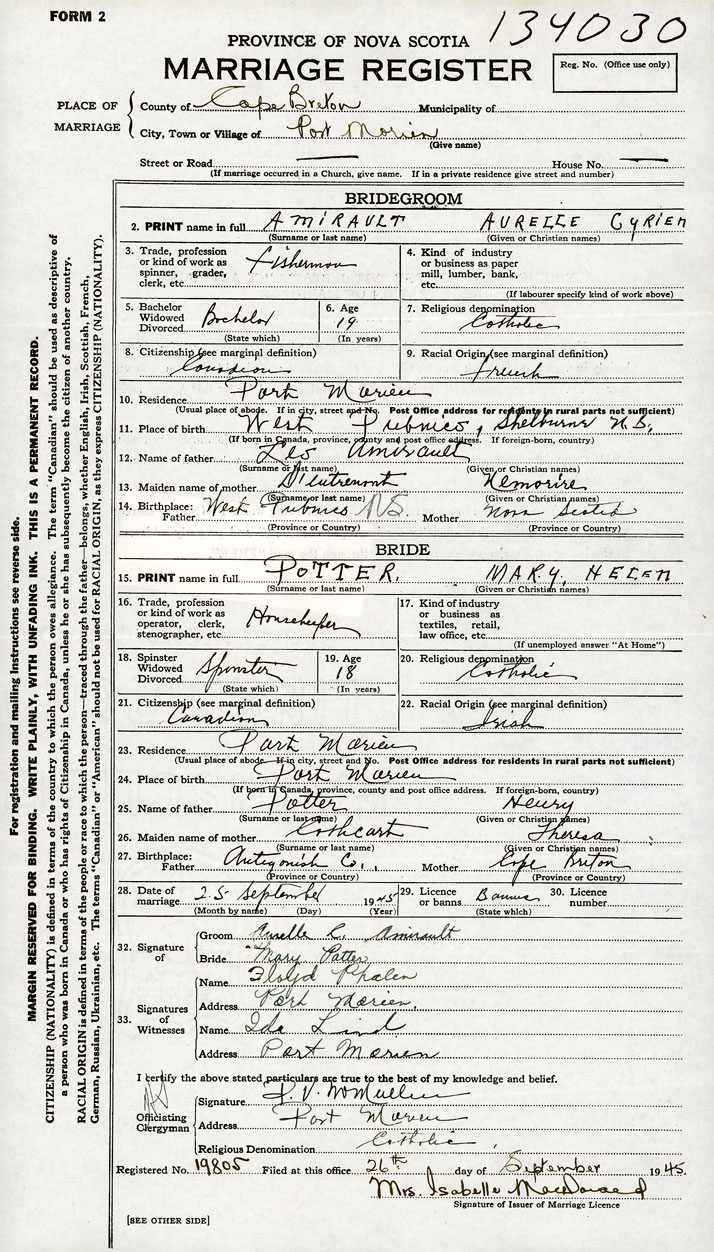 FORM 2
134030
PROVINCE OF NOVA SCOTIA
MARRIAGE REGISTER
Reg. No. (Office use only)
PLACE OF MARRIAGE
County of Cape Breton Municipality of
City, Town or Village of Port Morien
(Give name)
Street or Road House No.
(If marriage occurred in a Church, give name. If in a private residence give street and number)
BRIDEGROOM
2. PRINT name in full AMIRAULT AURELLE CYRIEN
(Surname or last name) (Given or Christian names)
3. Trade, profession or kind of work as spinner, grader, clerk, etc. Fisherman
4. Kind of industry or business as paper mill, lumber, bank, etc.
(If labourer specify kind of work above)
5. Bachelor Widowed Divorced Bachelor
(State which)
6. Age 19
(In years)
7. Religious denomination Catholic
8. Citizenship (see marginal definition) Canadian
9. Racial Origin (see marginal definition) French
10. Residence Port Morien
(Usual place of abode. If in city, street and No. Post Office address for residents in rural parts not sufficient)
11. Place of birth West Pubnico, Shelburne N.S.
(If born in Canada, province, county and post office address. If foreign-born, country)
12. Name of father Leo Amirault
(Surname or last name) (Given or Christian names)
13. Maiden name of mother D'eutremont
(Surname or last name) (Given or Christian names)
14. Birthplace: Father West Pubnico N.S. Mother Nova Scotia
(Province or Country) (Province or Country)
BRIDE
15. PRINT name in full POTTER, MARY, HELEN
(Surname or last name) (Given or Christian names)
16. Trade, profession or kind of work as operator, clerk, stenographer, etc. Housekeeper
17. Kind of industry or business as textiles, retail, law office, etc.
(If unemployed answer "At Home")
18. Spinster Widowed Divorced Spinster
(State which)
19. Age 18
(In years)
20. Religious denomination Catholic
21. Citizenship (see marginal definition) Canadian
22. Racial Origin (see marginal definition) Irish
23. Residence Port Morien
(Usual place of abode. If in city, street and No. Post Office address for residents in rural parts not sufficient)
24. Place of birth Port Morien
(If born in Canada, province, county and post office address. If foreign-born, country)
25. Name of father Potter Henry
(Surname or last name) (Given or Christian names)
26. Maiden name of mother Cathcart Theresa
(Surname or last name) (Given or Christian names)
27. Birthplace: Father Antigonish Co., Mother Cape Breton
(Province or Country) (Province or Country)
28. Date of marriage 25 September 1945
(Month by name) (Day) (Year)
29. Licence or banns Banns
(State which)
30. Licence number
32. Signature of
Groom Aurelle C. Amirault
Bride Mary Potter
33. Signatures of Witnesses
Name Floyd Phalen
Address Port Morien,
Name Ida Lind
Address Port Morien
I certify the above stated particulars are true to the best of my knowledge and belief.
Officiating Clergyman
Signature McMullin
Address Port Morien
Religious Denomination Catholic
Registered No. 19805 Filed at this office 26th day of September 1945.
Mrs. Isabelle MacDonald
Signature of Issuer of Marriage Licence
[SEE OTHER SIDE]
For registration and mailing instructions see reverse side.
MARGIN RESERVED FOR BINDING. WRITE PLAINLY, WITH UNFADING INK. THIS IS A PERMANENT RECORD.
CITIZENSHIP (NATIONALITY) is defined in terms of the country to which the person owes allegiance. The term "Canadian" should be used as descriptive of
a person who was born in Canada or who has rights of Citizenship in Canada, unless he or she has subsequently become the citizen of another country.
RACIAL ORIGIN is defined in terms of the people or race to which the person—traced through the father—belongs, whether English, Irish, Scottish, French,
German, Russian, Ukrainian, etc. The terms "Canadian" or "American" should not be used for RACIAL ORIGIN, as they express CITIZENSHIP (NATIONALITY).